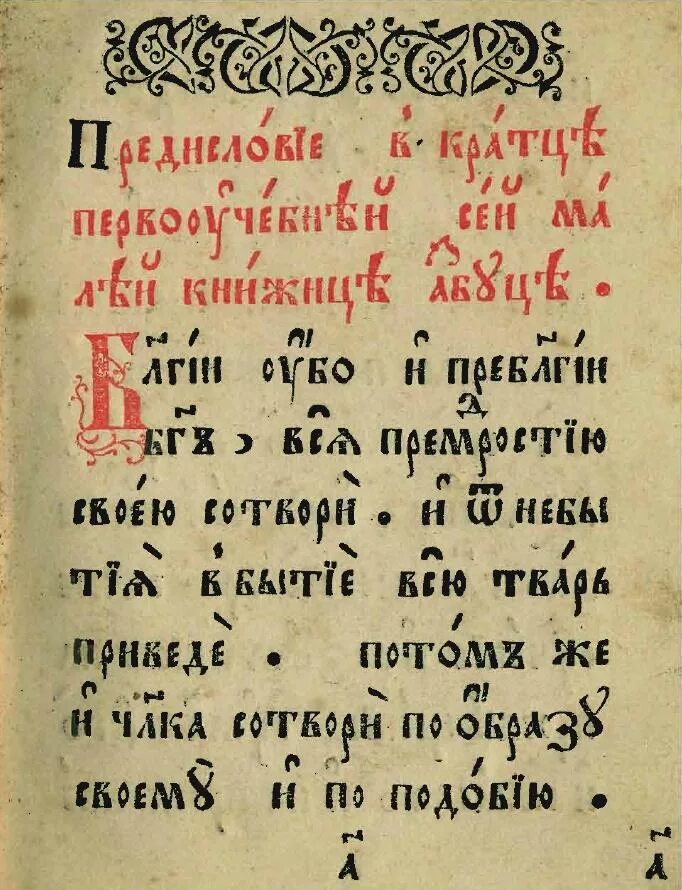 Предисло́вїе в̾ кра́тцѣ
первоꙋ҆че́бнѣй се́й ма́
лѣй кни́жицѣ а҆́збуцѣ .
Бл҃гі́и ᲂу҆́бо и҆ пребл҃гі́и
бг҃ъ , всѧ҆̀ премⷣростїю
свое́ю сотворѝ . и҆ ѿ небы
тїѧ̀ в̾ бытїѐ всю̀ тва́рь
приведѐ . пото́мъ же
и҆ чл҃ка сотворѝ по ѻ҆́бразꋋ
своемꋋ̀ и҆ по подо́бїю .
а҃ а҃